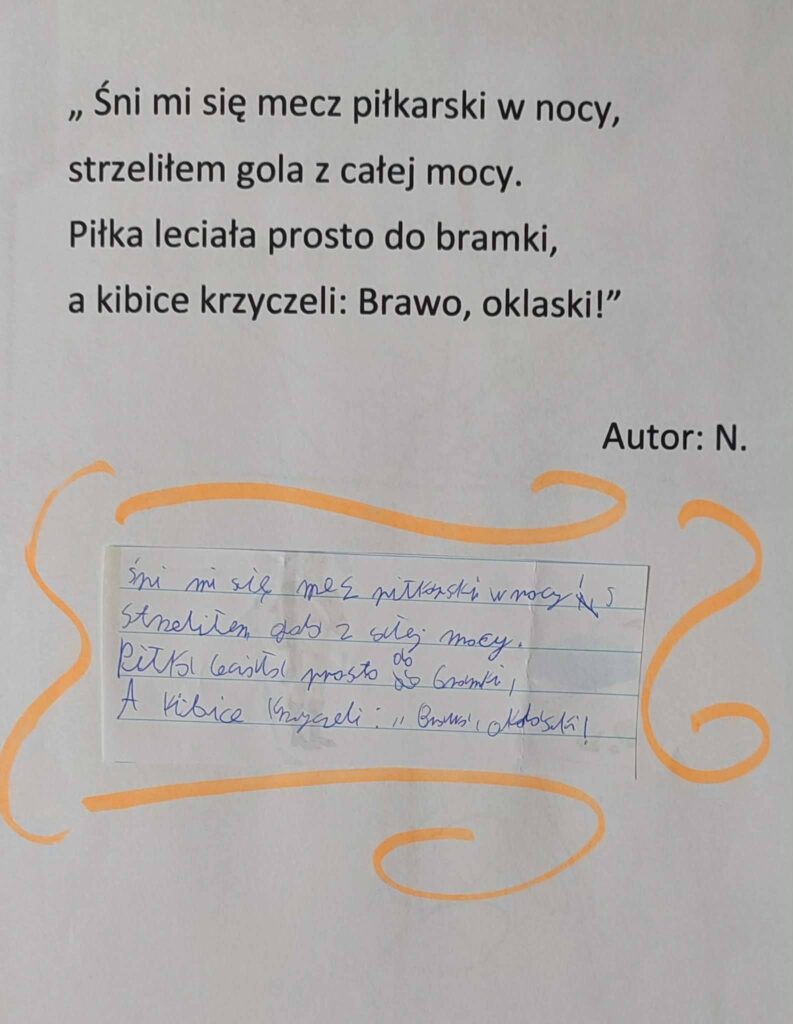 „ Śni mi się mecz piłkarski w nocy,
strzeliłem gola z całej mocy.
Piłka leciała prosto do bramki,
a kibice krzyczeli: Brawo, oklaski!”
Autor: N.
śni mi się mecz piłkarski w nocy
strzeliłem gola z całej mocy.
Piłka leciała prosto do bramki,
A kibice krzyczeli: „Brawo, oklaski!